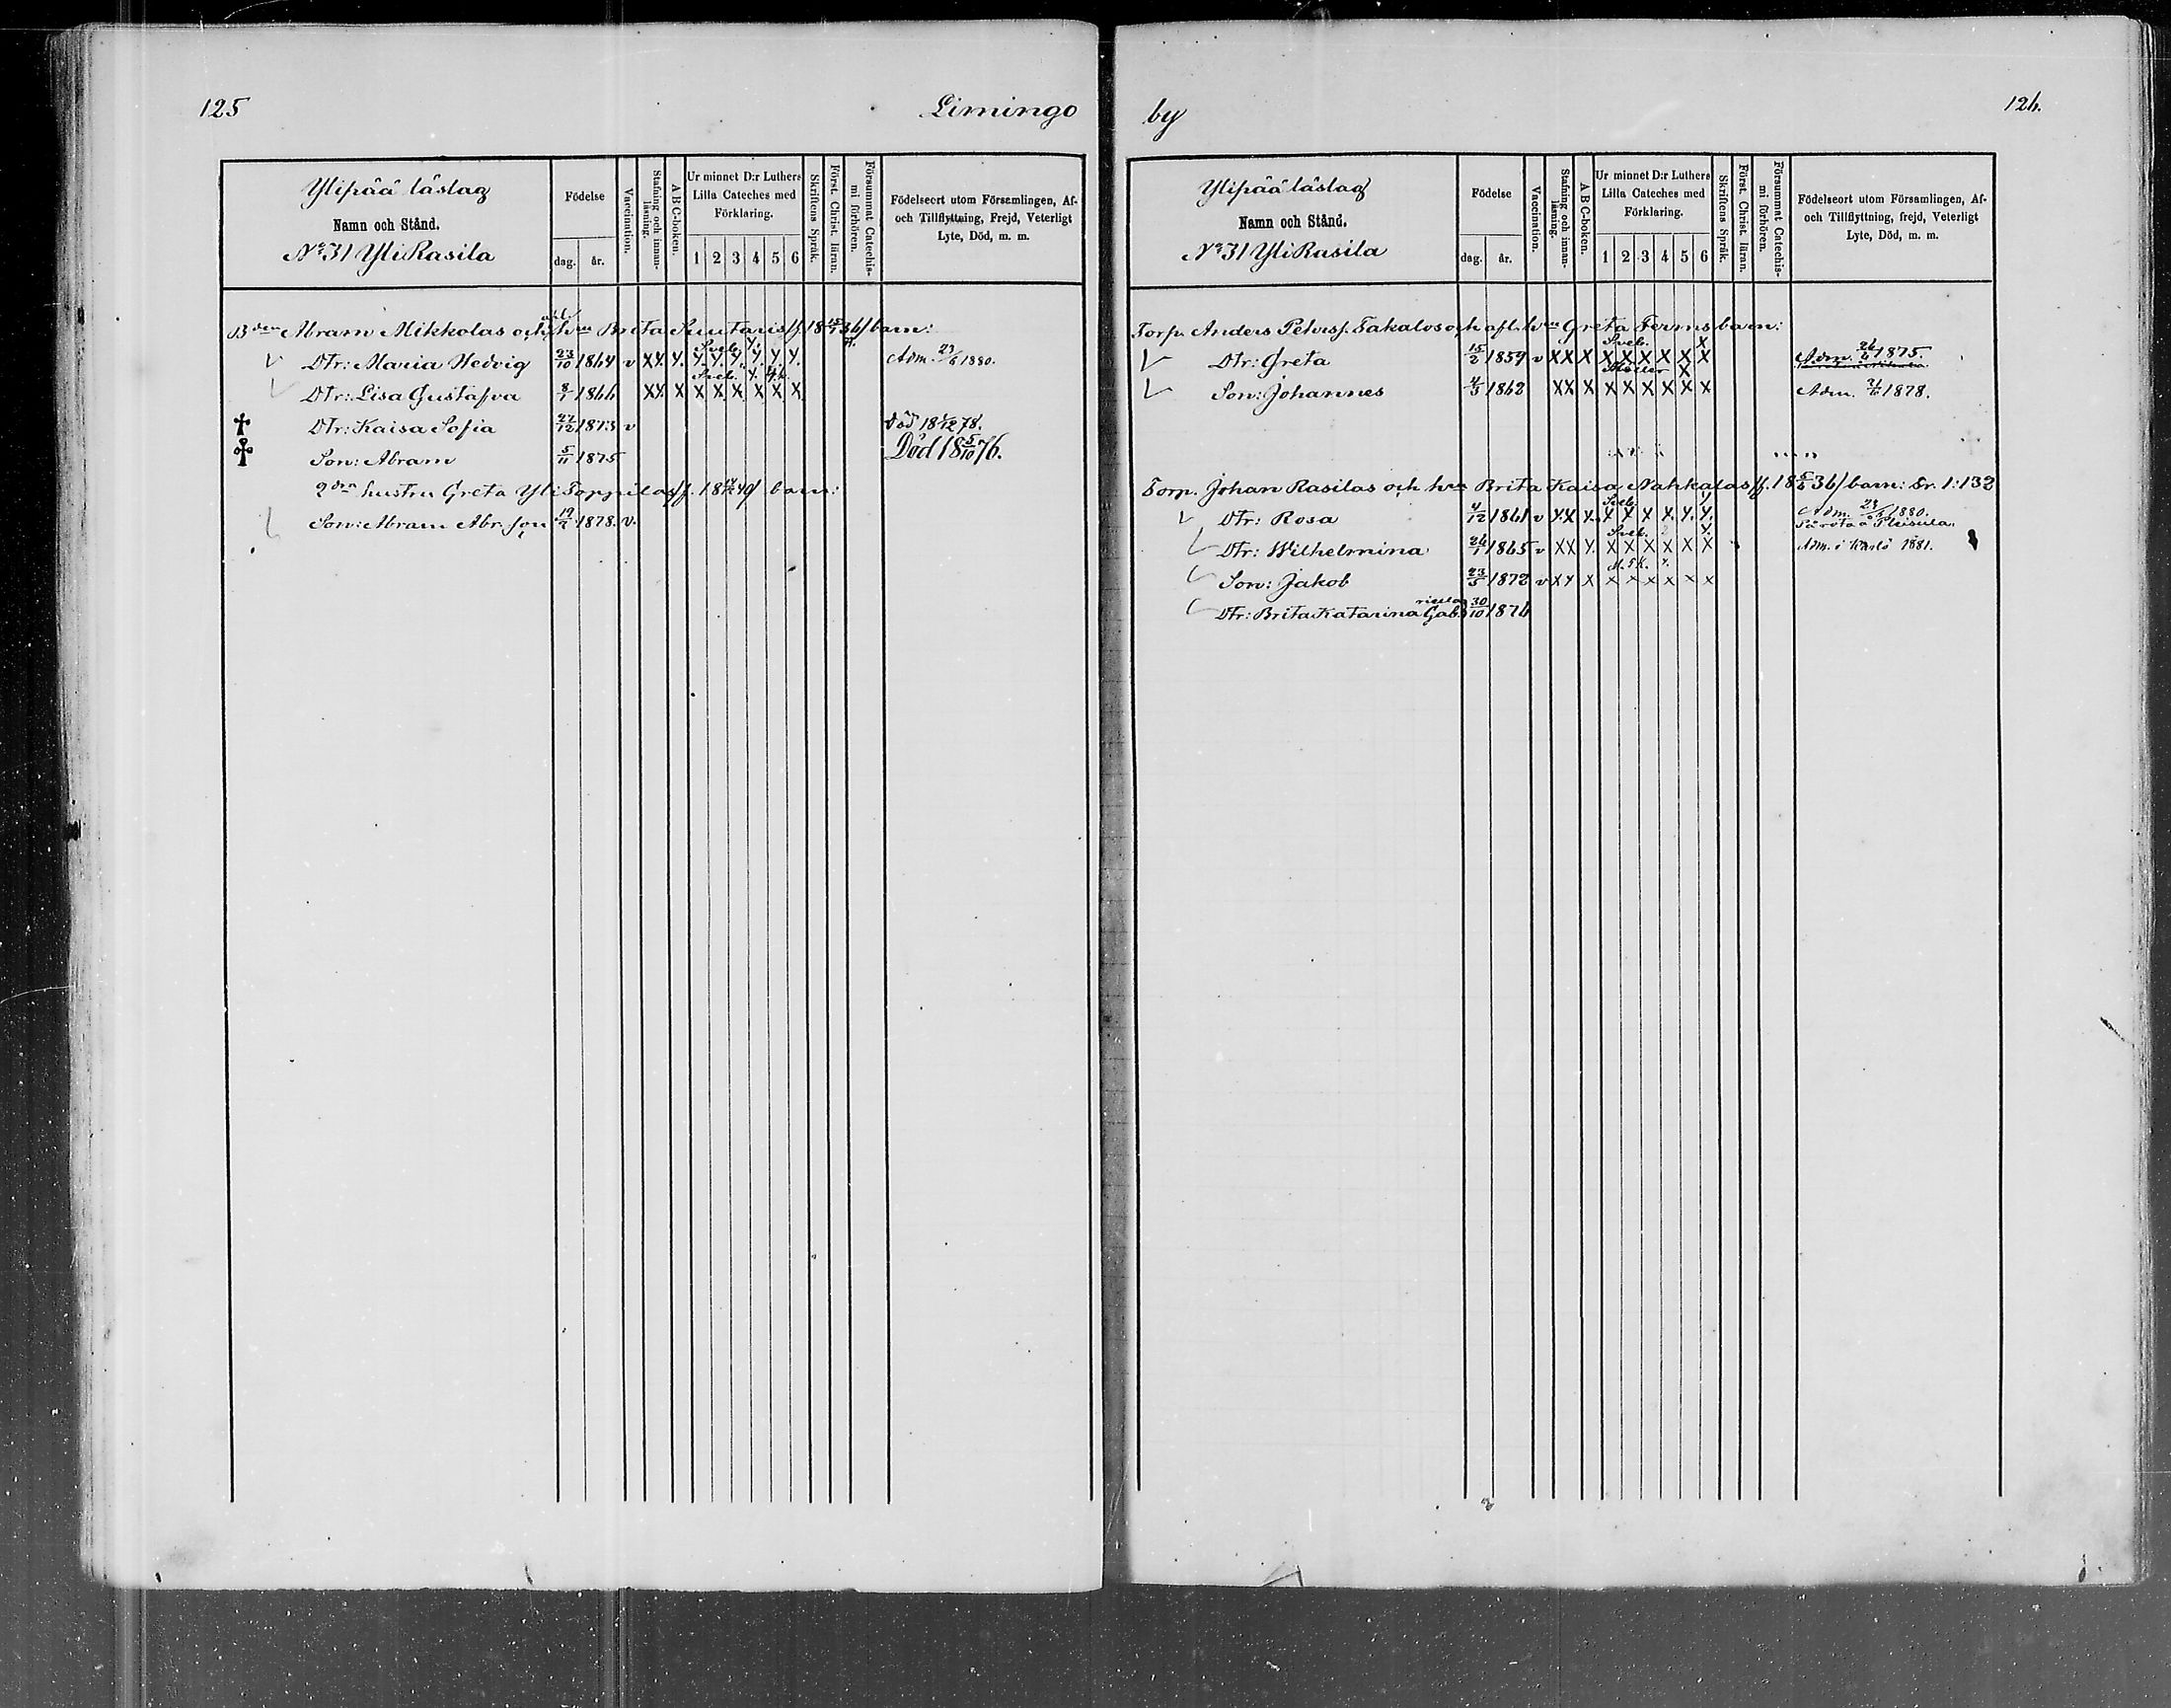 125
Limingo
Ylipää läslag
Namn och Stånd.
No 31 YliRasila
Födelse
dag.
år.
Vaccination.
Stafning och innan-läsning.
A B C-boken.
Ur minnet D:r Luthers
Lilla Cateches med
Förklaring.
1 2 3 4 5 6
Skriftens Språk.
Först. Christ. läran.
Försummat Catechis-mi förhören.
Födelseort utom Församlingen, Af-
och Tillflyttning, Frejd, Veterligt
Lyte, Död, m. m.
Bden Abram Mikkolas och hns Brita Suutaris /f. 18 15/1 36/ barn:
Sveb. X.
Dtr: Maria Hedvig 23/10 1864 v X X. X. X. X. X. X. X. X. Adm. 1880.
Sveb. X.
Dtr: Lisa Gustafva 8/1 1866 X X. X X X X X X X
Dtr: Kaisa Sofia 27/12 1873 v Död 18 78.
Son: Abram 5/11 1875 Död 18 5/10 76.
2dra hustru Greta Yli Toppilas /f. 18 40/ barn:
Son: Abram Abr. son 19/2 1878. v.
by
126.
Ylipää läslag
Namn och Stånd.
No 31 YliRasila
Födelse
dag.
år.
Vaccination.
Stafning och innan-läsning.
A B C-boken.
Ur minnet D:r Luthers
Lilla Cateches med
Förklaring.
1 2 3 4 5 6
Skriftens Språk.
Först. Christ. läran.
Försummat Catechis-mi förhören.
Födelseort utom Församlingen, Af-
och Tillflyttning, frejd, Veterligt
Lyte, Död, m. m.
Torp. Anders Petersf. Takalos och afl. hns Greta Ferms barn:
Sveb. X
Dtr: Greta 15/2 1859 v X X X X X X X X X Adm. 1875.
X
Son: Johannes 4/3 1862 X X X X X X X X X Adm. 1878.
Torp. Johan Rasilas och hns Brita Kaisa Nahkalas /f. 18 36/ barn: Fr. 1:132
Sveb. X.
Dtr: Rosa 4/12 1861 v X X X. X X X X. X. X. Adm. 1880.
Sveb. X.
Dtr: Wilhelmina 26/1 1865 v X X X. X X X X X X Adm. i Karlö 1881.
Son: Jakob 23/5 1872 v X X X X X X X X X
Dtr: Brita Katarina Gabriella 30/10 1876